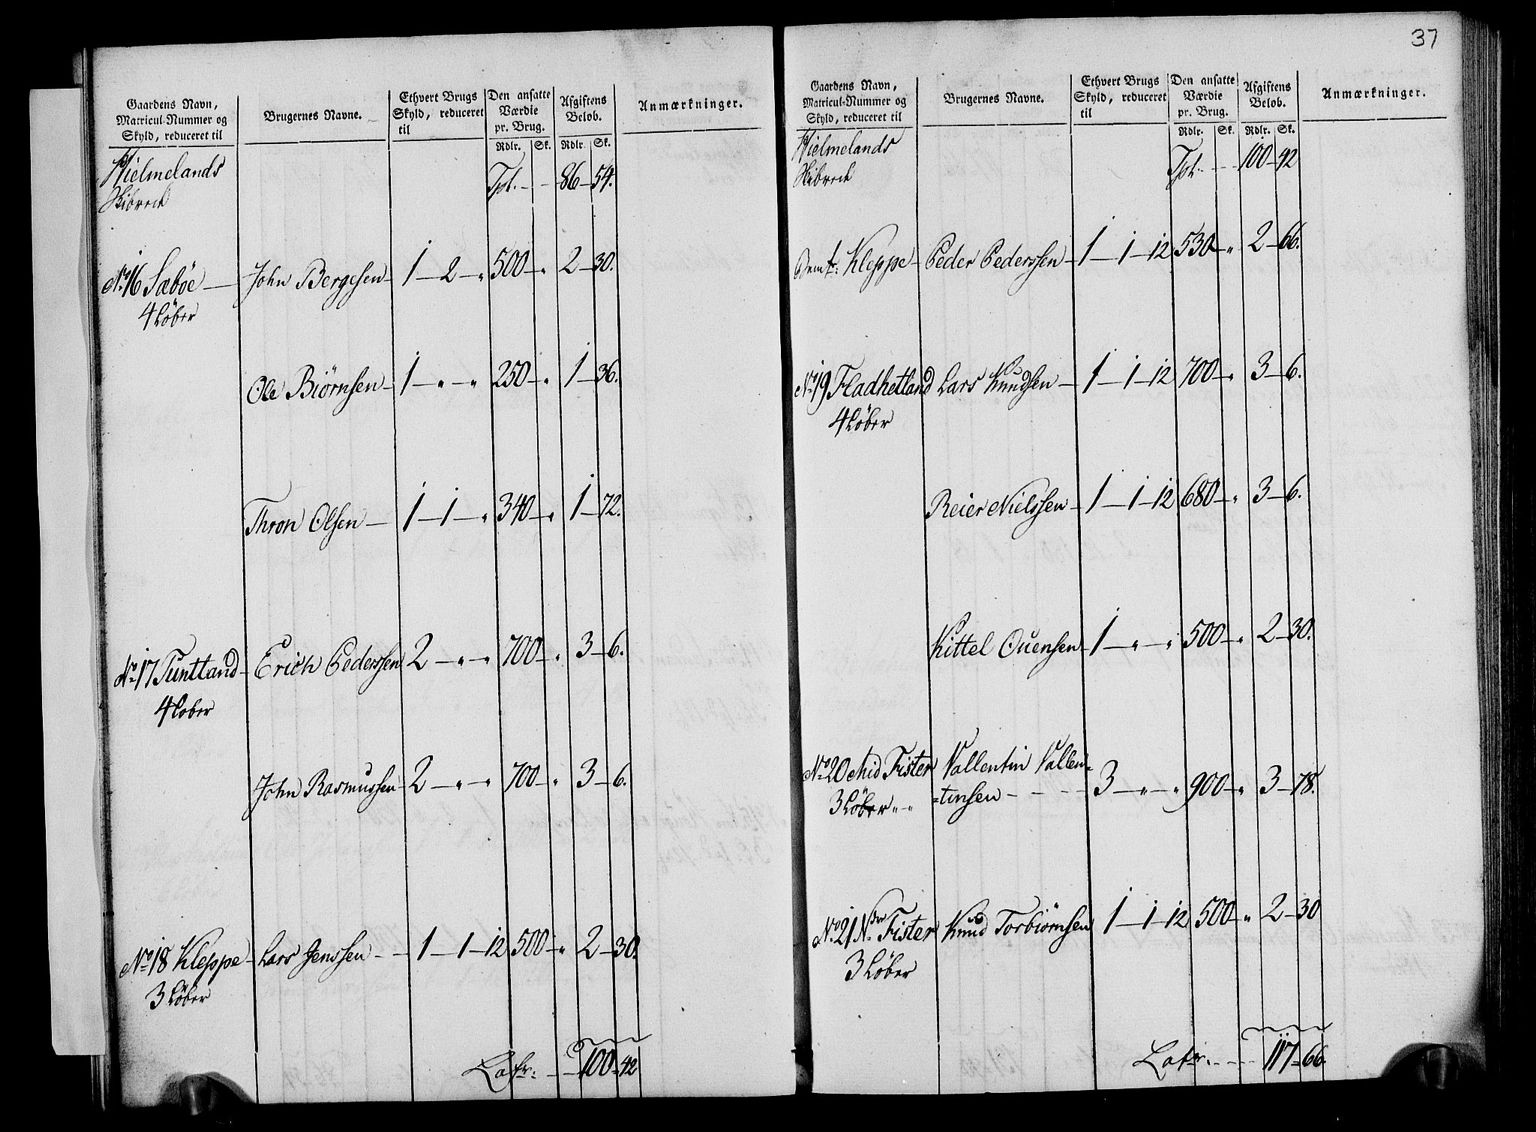 Gaardens Navn, Matricul-Nummer og Skyld, reduceret til | Brugernes Navne. | Ethvert Brugs Skyld, reduceret til | Den ansatte Værdie pr. Brug. Rdlr. Sk. | Afgiftens Beløb. Rdlr. Sk. | Anmærkninger.
Hielmelands Tpt. - - 86 - 54.
Skibrede
No 16 Sæbøe - John Bergesen - 1 - 2 - „ 500 - „ 2 - 30.
4 Løber
Ole Biørnsen - 1 - „ - „ 250 - „ 1 - 36.
Thron Olsen - 1 - 1 - „ 340 - „ 1 - 72.
No 17 Tuntland - Erich Pederssen 2 - „ - „ 700 - „ 3 - 6.
4 Løber
John Rasmussen 2 - „ - „ 700 - „ 3 - 6.
No 18 Kleppe - Lars Jenssen - - 1 - 1 - 12 500 - „ 2 - 30.
3 Løber
Latr: - - 100 - 42
37
Gaardens Navn, Matricul-Nummer og Skyld, reduceret til | Brugernes Navne. | Ethvert Brugs Skyld, reduceret til | Den ansatte Værdie pr. Brug. Rdlr. Sk. | Afgiftens Beløb. Rdlr. Sk. | Anmærkninger.
Hielmelands Tpt. - - 100 - 42
Skibrede
Kleppe - Peder Pederssen - 1 - 1 - 12 530 - „ 2 - 66.
No 19 Fladhetland Lars Knudsen - 1 - 1 - 12 700 - „ 3 - 6.
4 Løber
Reier Nielssen - 1 - 1 - 12 680 - „ 3 - 6.
Kittel Ouensen - 1 - „ - „ 500 - „ 2 - 30.
No 20 Mid Fister Vallentin Vallen-
3 Løber „ „ =tinsen - - - - 3 - „ - „ 900 - „ 3 - 78.
No 21 Nr Fister Knud Torbiørnsen 1 - 1 - 12 500 - „ 2 - 30
3 Løber
Latr: - - - 117 - 66